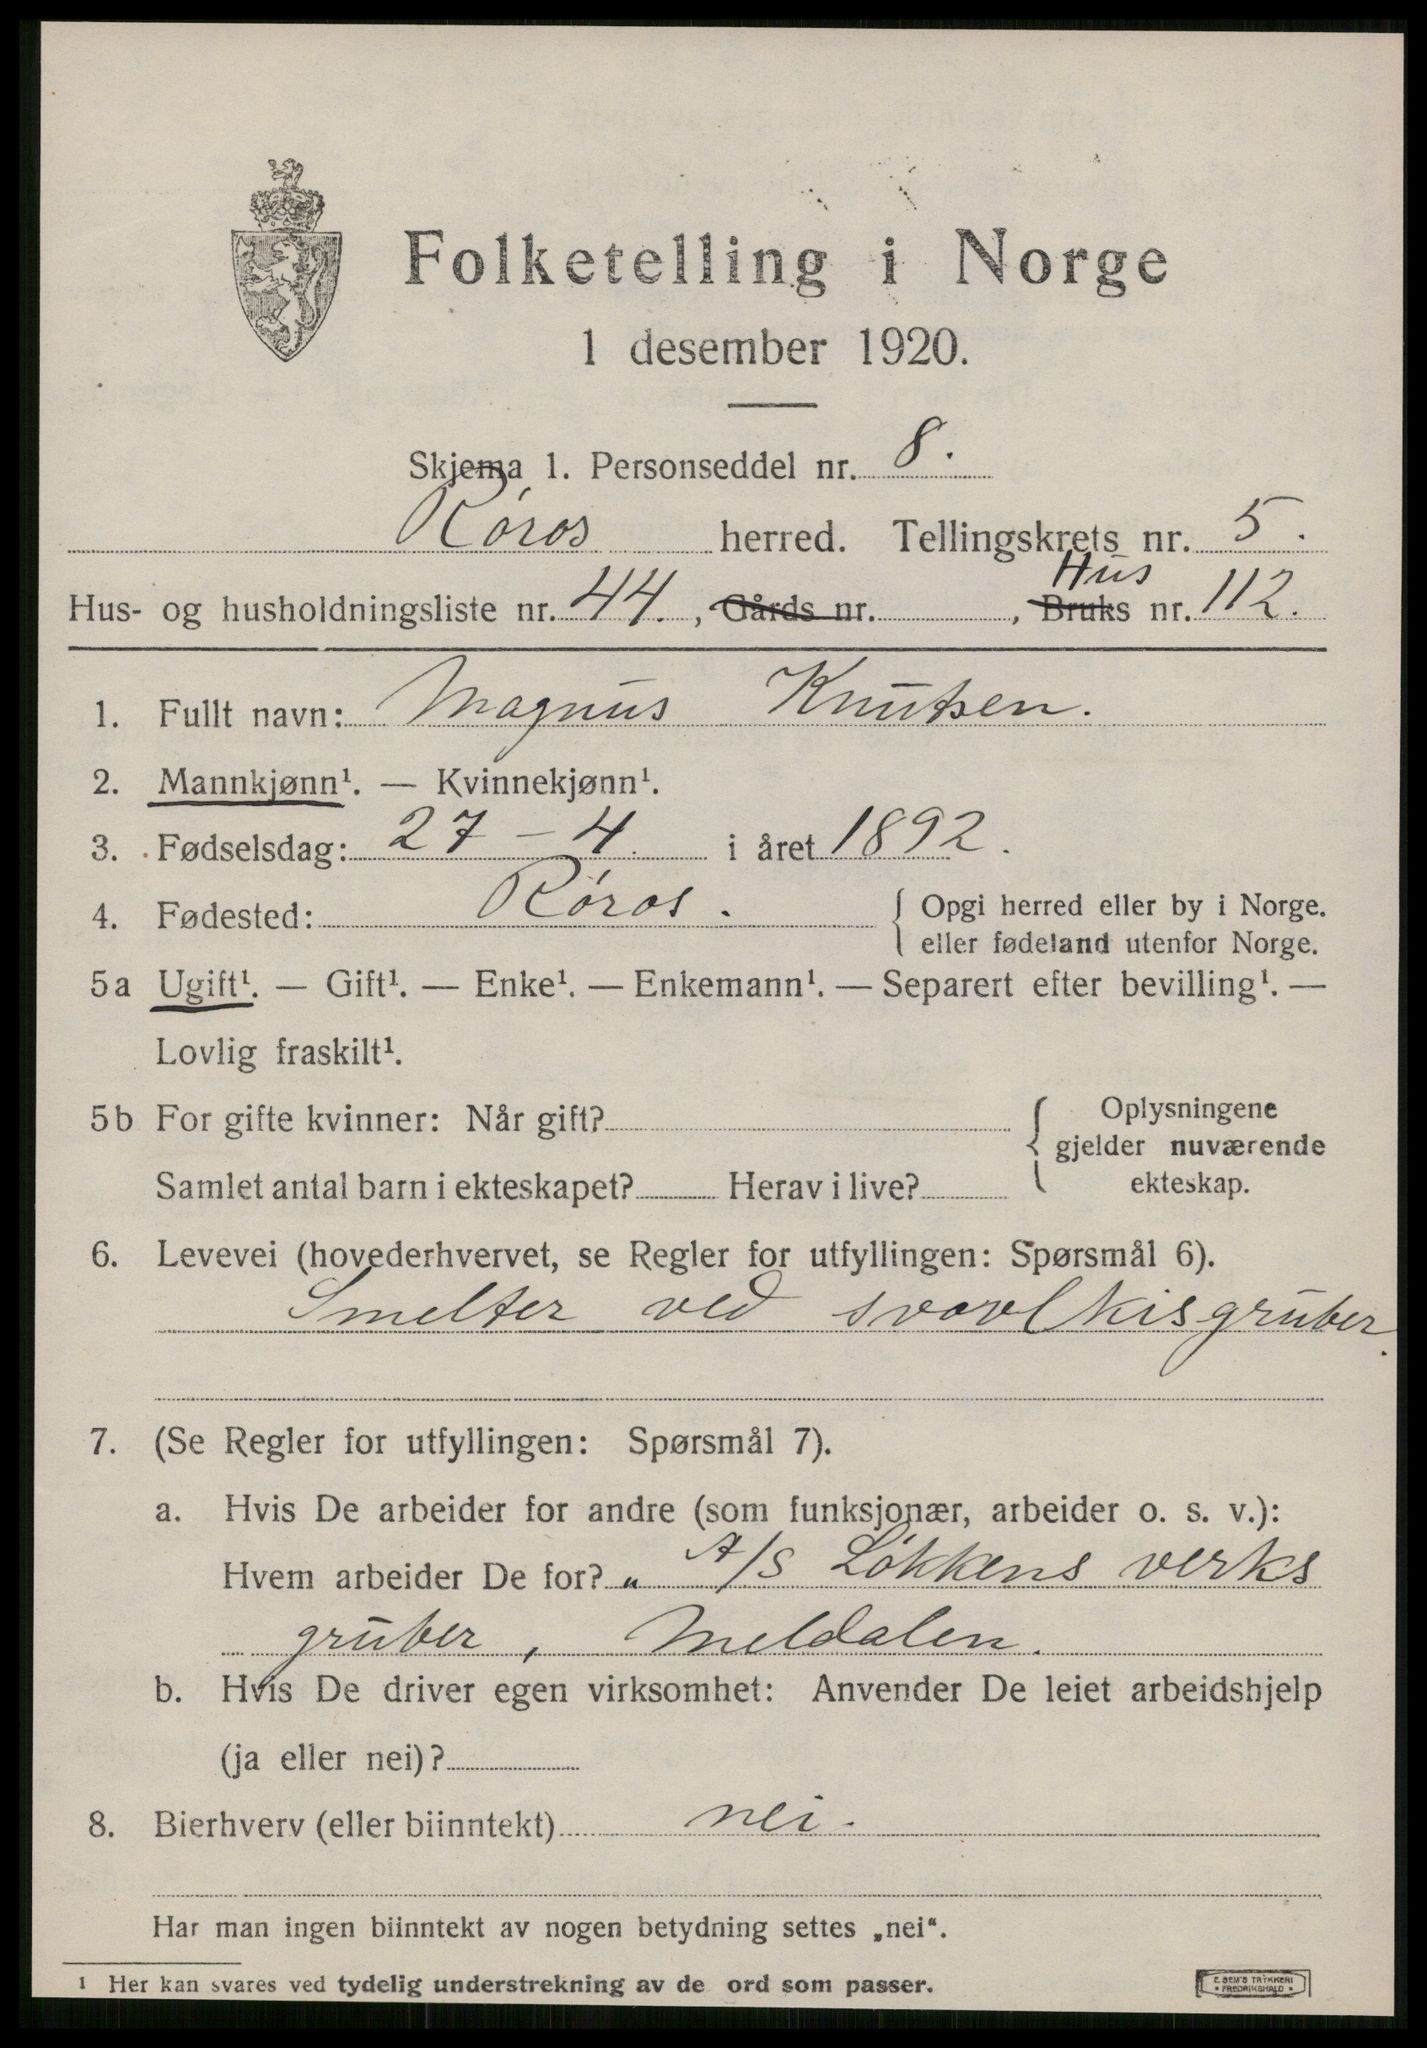 Folketelling i Norge
1 desember 1920.
Skjema 1. Personseddel nr. 8.
Røros herred. Tellingskrets nr. 5.
Hus
Hus- og husholdningsliste nr. 44., Gårds nr. , Bruks nr. 112.
1. Fullt navn: Magnus Knutsen.
2. Mannkjønn¹. — Kvinnekjønn¹.
3. Fødselsdag: 27 - 4. i året 1892.
4. Fødested: Røros. { Opgi herred eller by i Norge.
eller fødeland utenfor Norge.
5a Ugift¹. — Gift¹. — Enke¹. — Enkemann¹. — Separert efter bevilling¹. —
Lovlig fraskilt¹.
5b For gifte kvinner: Når gift? { Oplysningene
gjelder nuværende
Samlet antal barn i ekteskapet? Herav i live? ekteskap.
6. Levevei (hovederhvervet, se Regler for utfyllingen: Spørsmål 6).
Smelter ved svovlkisgruber.
7. (Se Regler for utfyllingen: Spørsmål 7).
a. Hvis De arbeider for andre (som funksjonær, arbeider o. s. v.):
Hvem arbeider De for? „ A/S Løkkens verks
gruber, Meldalen.
b. Hvis De driver egen virksomhet: Anvender De leiet arbeidshjelp
(ja eller nei)?
8. Bierhverv (eller biinntekt) nei.
Har man ingen biinntekt av nogen betydning settes „nei“.
¹ Her kan svares ved tydelig understrekning av de ord som passer.
E. SEM'S TRYKKERI
* FREDRIKSHALD *